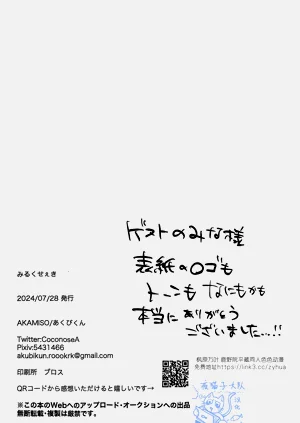 ゲストのみな様
表紙のロゴも
トーンも なにもかも
本当に ありがとう
ございました…!!
みるくせぇき
2024/07/28 発行
AKAMISO/あくびくん
Twitter:CoconoseA
Pixiv:5431466
akubikun.roookrk@gmail.com
印刷所 ブロス
QRコードから感想いただけると嬉しいです→
※この本のWebへのアップロード・オークションへの出品
無断転載・複製は厳禁です。
免费地址https://link3.cc/zyhua